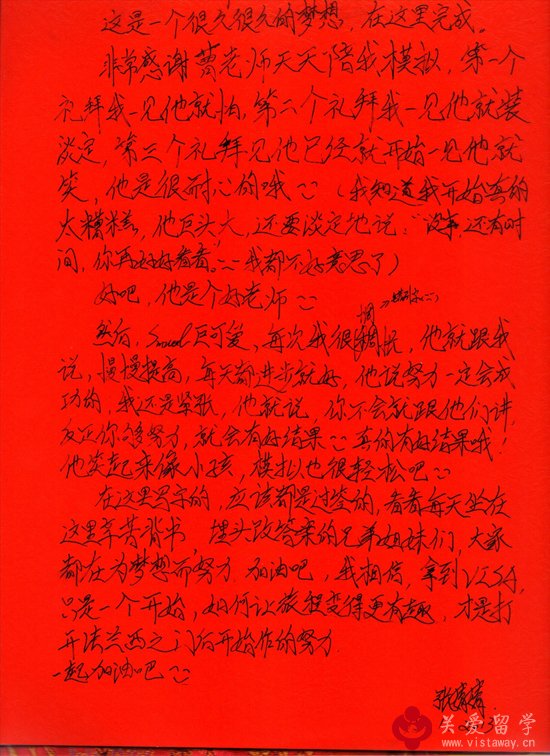 这是一个很久很久的梦想，在这里完成。
非常感谢曹老师天天陪我模拟，第一个
礼拜我一见他就怕，第二个礼拜我一见他就装
淡定，第三个礼拜见他已经就开始一见他就
笑，他是很耐心的哦
（我知道我开始真的
太糟糕，他巨头大，还要淡定地说："没事，还有时
间，你再好好看看。我都不好意思了）
好吧，他是个好老师
然后，巨可爱，每次我很
他就跟我
说，慢慢提高，每天都进步就好，他说努力一定会成
功的，我还是紧张，他就说，你不会就跟他们讲，
反正你够努力，就会有好结果
真的有好结果哦！
他笑起来像小孩，模拟也很轻松吧
在这里写字的，应该都是过签的，看看每天坐在
这里辛苦背书，埋头改答案的兄弟姐妹们，大家
都在为梦想而努力，加油吧，我相信，拿到VISA，
只是一个开始，如何让旅程变得更有趣，才是打
开法兰西之门后开始作的努力．
一起加油吧
关爱留学
www.vistaway.com